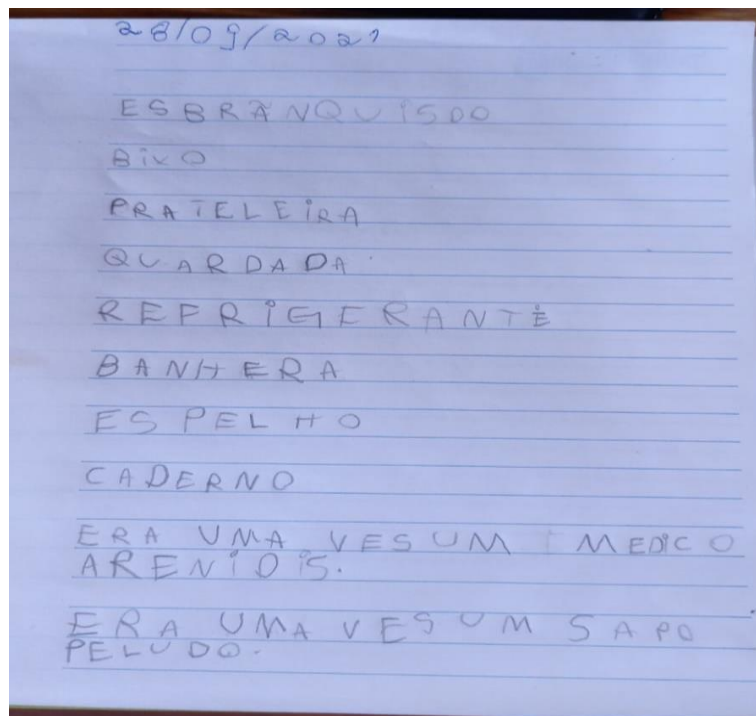 28/09/2021
ESBRÃNQUISDO
BIVO
PRATELEIRA
QUARDADA
REFRIGERANTE
BANHERA
ESPELHO
CADERNO
ERA UMA VES UM MEDICO
ARENIDIS.
ERA UMA VES UM SAPO
PELUDO.